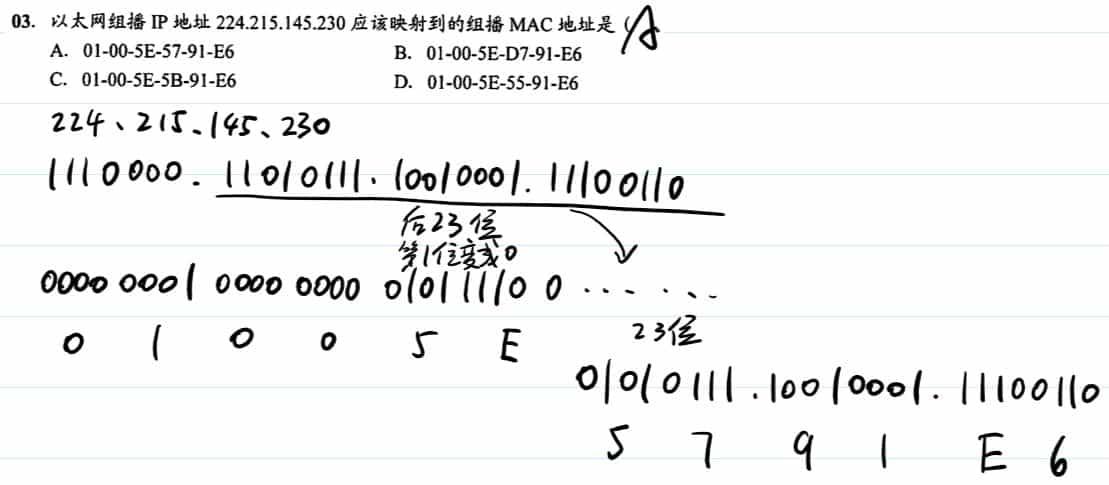 03. 以太网组播 IP 地址 224.215.145.230 应该映射到的组播 MAC 地址是( A
A. 01-00-5E-57-91-E6 B. 01-00-5E-D7-91-E6
C. 01-00-5E-5B-91-E6 D. 01-00-5E-55-91-E6
224、215、145、230
1110000. 11010111. 10010001. 11100110
后23位
第1位变成0
0000 0001 0000 0000 01011110 0 ......
0 1 0 0 5 E 23位
01010111.10010001.11100110
5 7 9 1 E 6